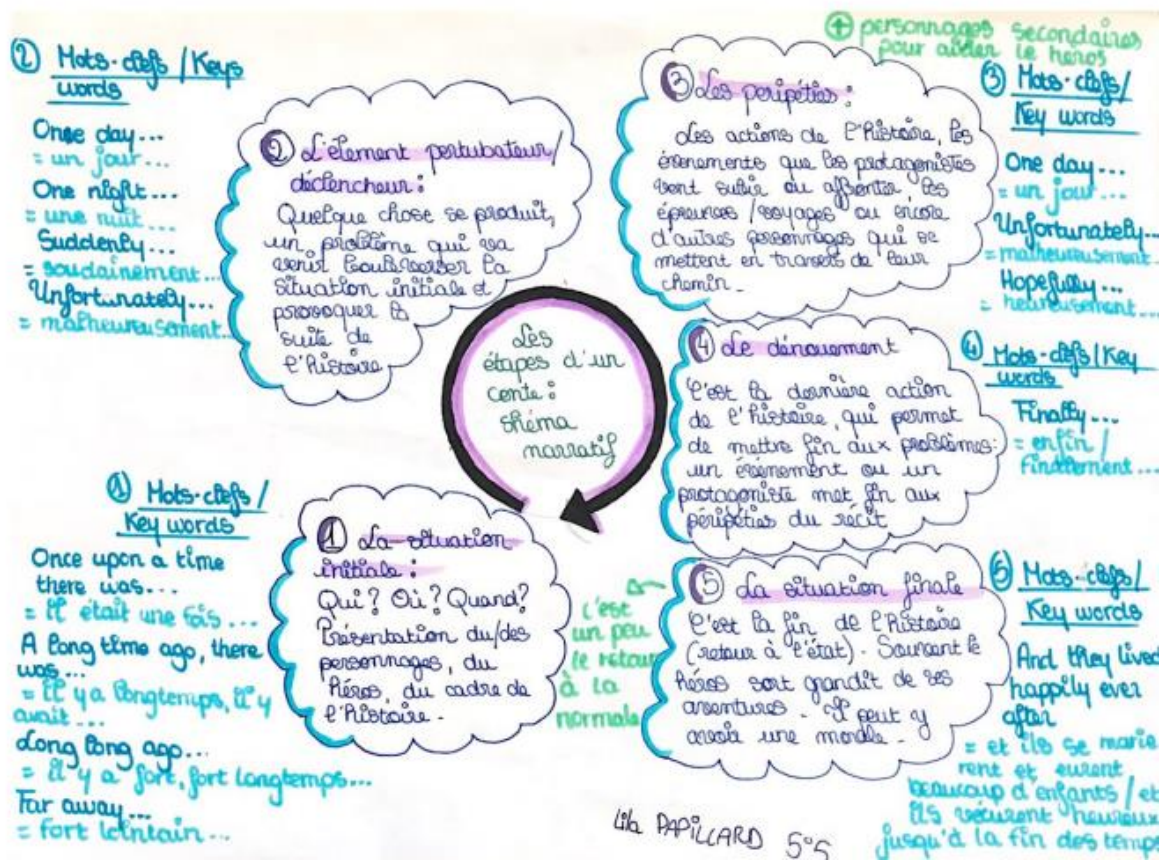 ② Mots-clefs / Keys
words
Onse day...
= un jour...
One night...
= une nuit...
Suddently...
= soudainement...
Unfortunately...
= malheureusement...
② L'élement pertubateur/
déclencheur :
Quelque chose se produit,
un problème qui va
venir bouleverser la
situation initiale et
provoquer la
suite de
l'histoire
+ personnages secondaires
pour aider le héros
③ Les péripéties :
Les actions de l'histoire, les
évènements que les protagonistes
vont subir ou affronter les
épreuves / voyages ou encore
d'autres personnages qui se
mettent en travers de leur
chemin.
③ Mots-clefs/
Key words
One day...
= un jour...
Unfortunately...
= malheureusement...
Hopefully...
= heureusement...
Les
étapes d'un
conte :
shéma
narratif
④ Le dénouement
C'est la dernière action
de l'histoire, qui permet
de mettre fin aux problèmes:
un événement ou un
protagoniste met fin aux
péripéties du récit
④ Mots-clefs/Key
words
Finally...
= enfin /
finallement...
① Mots-clefs /
Key words
Once upon a time
there was...
= il était une fois...
A long time ago, there
was...
= il y a longtemps, il y
avait...
Long long ago...
= il y a fort, fort longtemps...
Far away...
= fort lointain...
① La situation
initiale :
Qui? Où? Quand?
Présentation du/des
personnages, du
héros, du cadre de
l'histoire.
c'est
un peu
le retour
à la
normale
⑤ La situation finale
C'est la fin de l'histoire
(retour à l'état). Souvent le
héros sort grandit de ses
aventures. Il peut y
avoir une morale.
⑤ Mots-clefs/
Key words
And they lived
happily ever
after
= et ils se marie
rent et eurent
beaucoup d'enfants / et
ils vécurent heureux
jusqu'à la fin des temps
Lila PAPILLARD 5°5